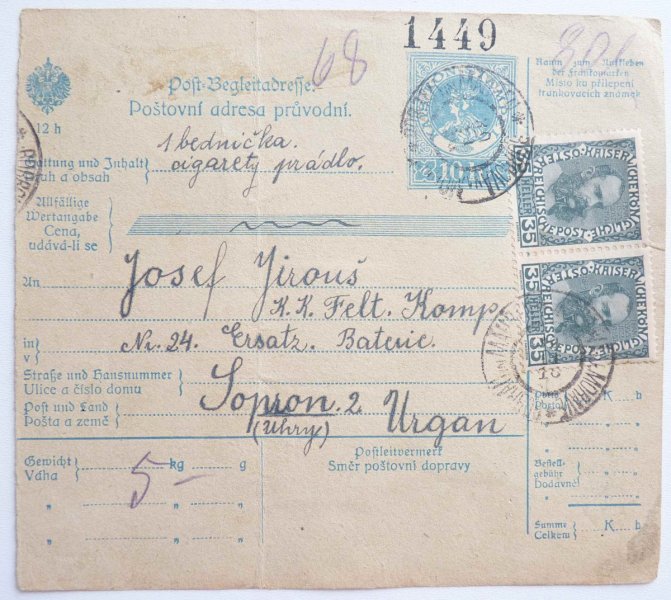 1449
68
Post-Begleitadresse.
Poštovní adresa průvodní.
12 h
Raum zum Aufkleben
der Frankomarken
Místo ku přilepení
frankovacích známek
10
1 bednička.
cigarety prádlo.
Gattung und Inhalt
Druh a obsah
Allfällige
Wertangabe
Cena,
udává-li se
KAISERL·KÖNIGLICHE·ÖSTERREICHISCHE·POST
35 HELLER 35
KAISERL·KÖNIGLICHE·ÖSTERREICHISCHE·POST
35 HELLER 35
An
Josef Jirouš
K. K. Felt. Komp.
in
v
Nr. 24. Ersatz. Baterie.
Straße und Hausnummer
Ulice a číslo domu
Post und Land
Pošta a země
Sopron. 2.
(Uhry)
Urgan
K h
Porto
Gewicht
Váha
kg g
5 –
Postleitvermerk
Směr poštovní dopravy
Bestell-
gebühr
Dodavné
Summe
Celkem
K h